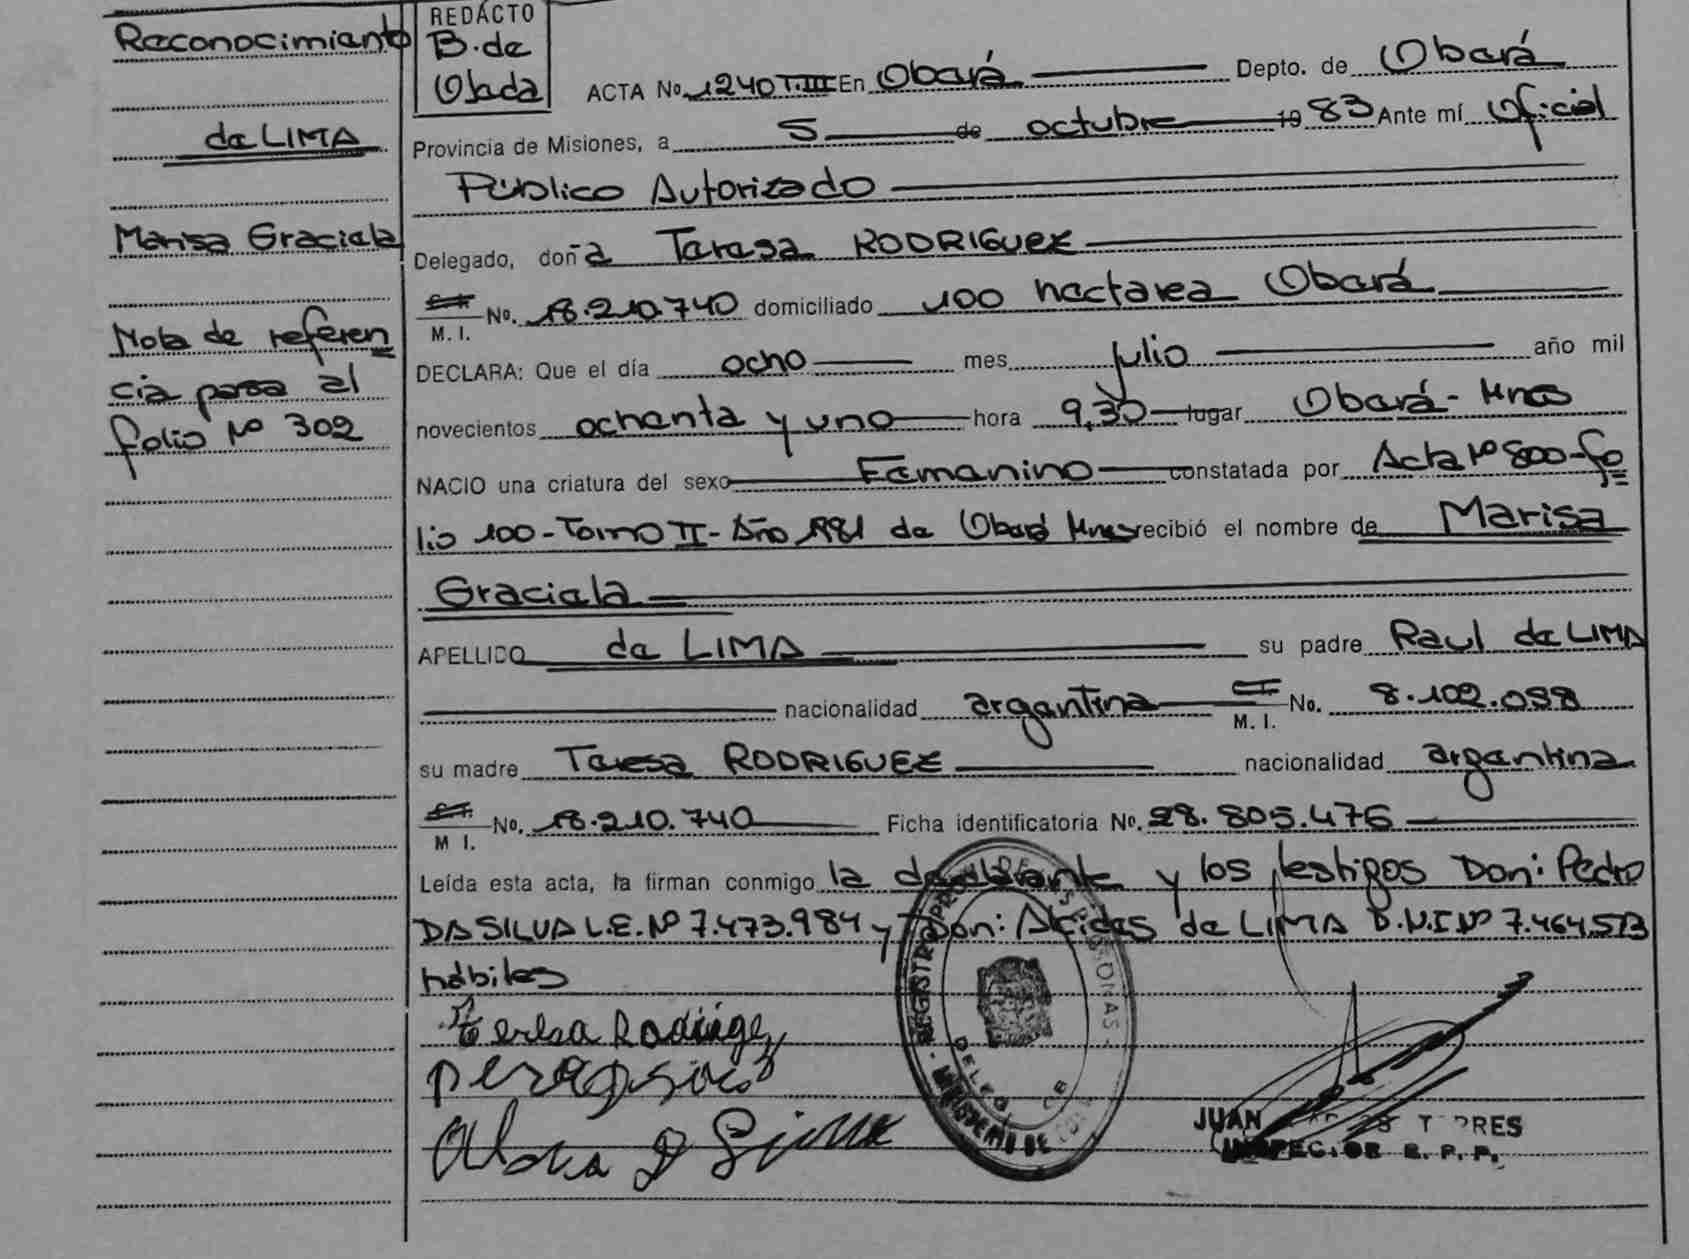 Reconocimiento
de LIMA
Marisa Graciela
Nota de referen
cia pasa al
folio Nº 302
REDACTO
B. de
Ojeda
ACTA No. 1240 T. III En Oberá Depto. de Oberá
Provincia de Misiones, a 5 de octubre 19 83 Ante mí Oficial
Público Autorizado
Delegado, doña Teresa RODRIGUEZ
C.I.
M. I. No. 18.210.740 domiciliado 100 hectarea Oberá
DECLARA: Que el día ocho mes julio año mil
novecientos ochenta y uno hora 9,30 lugar Oberá - Mnes
NACIO una criatura del sexo Femenino constatada por Acta Nº 800-fo
lio 100-Tomo II-Año 1981 de Oberá Mnes recibió el nombre de Marisa
Graciela
APELLIDO de LIMA su padre Raul de LIMA
nacionalidad argentina C.I. M. I. No. 8.102.098
su madre Teresa RODRIGUEZ nacionalidad argentina
C.I.
M I. No. 18.210.740 Ficha identificatoria No. 28.805.476
Leída esta acta, la firman conmigo la declarante y los testigos Don: Pedro
DA SILVA L.E. Nº 7.473.984 y Don: Alcides de LIMA D.N.I Nº 7.464.513
hábiles
Teresa Rodrigez
REGISTRO PROV. DE LAS PERSONAS
JUAN TORRES
INSPECTOR R. P. P.